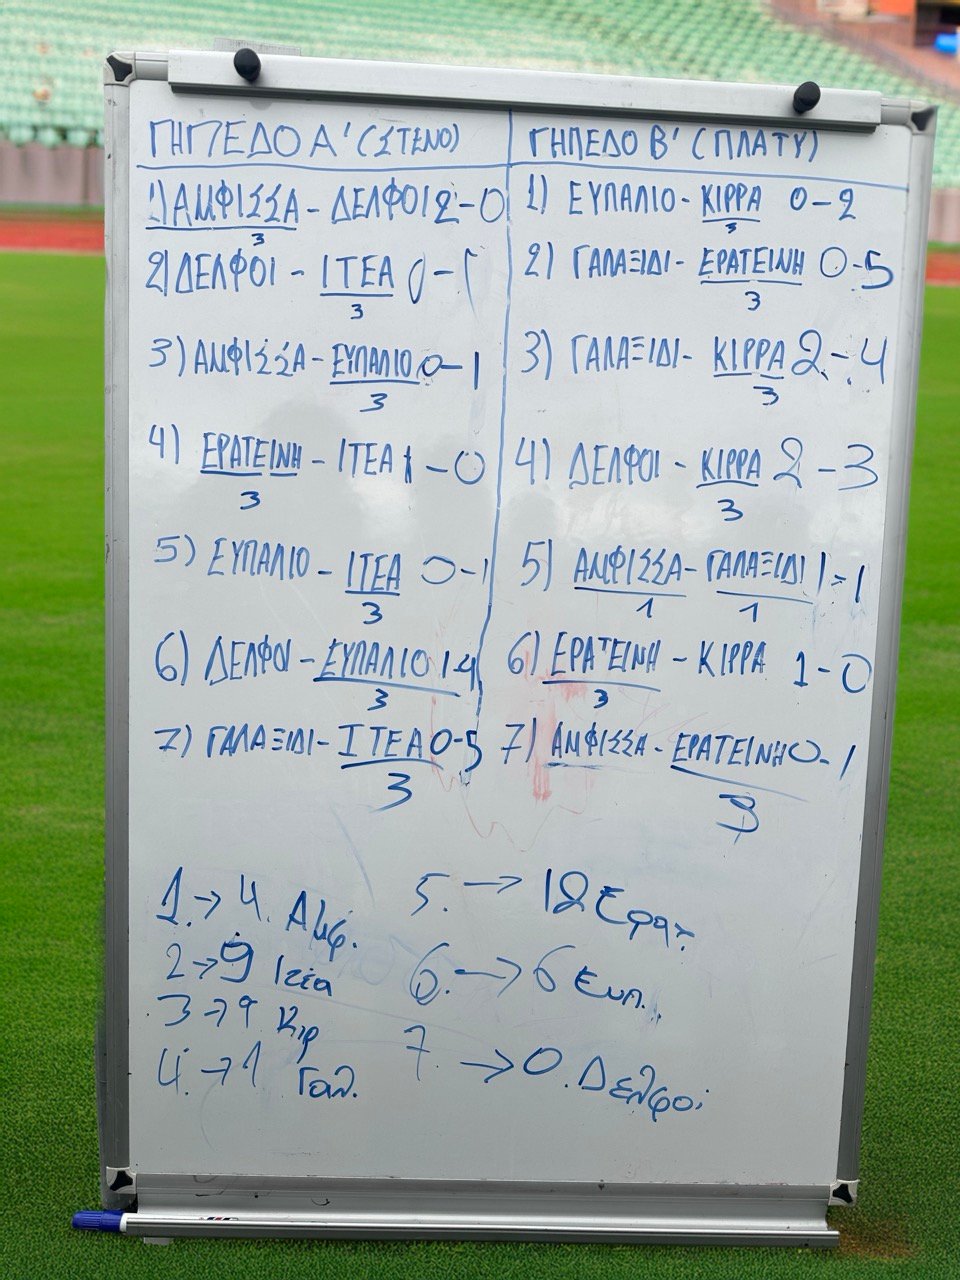 ΓΗΠΕΔΟ Α' (ΣΤΕΝΟ)
1) ΑΜΦΙΣΣΑ - ΔΕΛΦΟΙ 2-0
3
2) ΔΕΛΦΟΙ - ΙΤΕΑ 0-
3
3) ΑΜΦΙΣΣΑ - ΕΥΠΑΛΙΟ 0-1
3
4) ΕΡΑΤΕΙΝΗ - ΙΤΕΑ 1-0
3
5) ΕΥΠΑΛΙΟ - ΙΤΕΑ 0-1
3
6) ΔΕΛΦΟΙ - ΕΥΠΑΛΙΟ 1-4
3
7) ΓΑΛΑΞΙΔΙ - ΙΤΕΑ 0-5
3
ΓΗΠΕΔΟ Β' (ΠΛΑΤΥ)
1) ΕΥΠΑΛΙΟ - ΚΙΡΡΑ 0-2
3
2) ΓΑΛΑΞΙΔΙ - ΕΡΑΤΕΙΝΗ 0-5
3
3) ΓΑΛΑΞΙΔΙ - ΚΙΡΡΑ 2-4
3
4) ΔΕΛΦΟΙ - ΚΙΡΡΑ 2-3
3
5) ΑΜΦΙΣΣΑ - ΓΑΛΑΞΙΔΙ 1-1
1 1
6) ΕΡΑΤΕΙΝΗ - ΚΙΡΡΑ 1-0
3
7) ΑΜΦΙΣΣΑ - ΕΡΑΤΕΙΝΗ 0-1
3
1. → 4. Αμφ.
2 → 9 Ιτέα
3 → 9 Κιρ
4. → 1. Γαλ.
5. → 12 Ερατ.
6. → 6 Ευπ.
7. → 0. Δελφοί